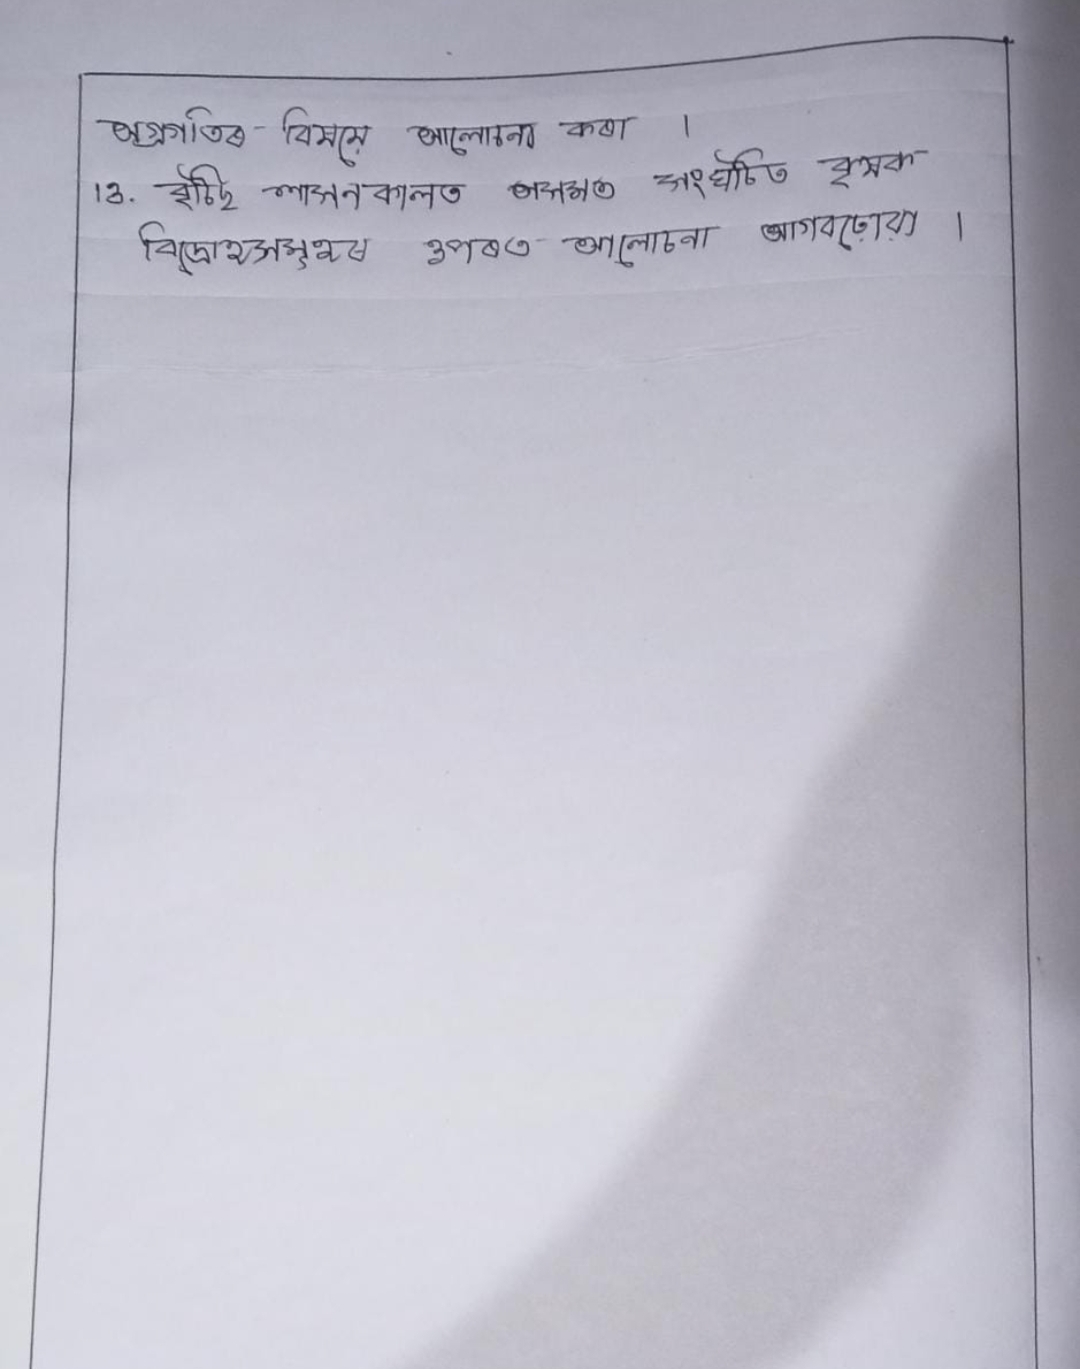 অগ্ৰগতিৰ বিষয়ে আলোচনা কৰা ।
13. বৃটিছ শাসন কালত অসমত সংঘটিত কৃষক
বিদ্ৰোহসমূহৰ ওপৰত আলোচনা আগবঢ়োৱা ।